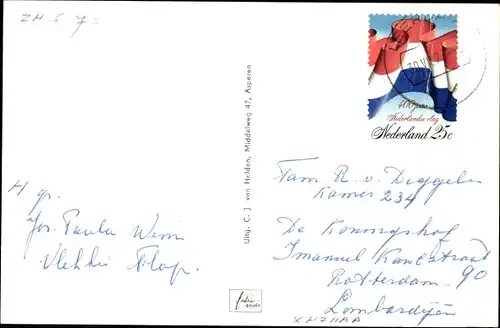 ZH 6 7=
400 jaar
Nederlandse vlag
Nederland 25c
Uitg. C. J. van Helden, Middelweg 47, Asperen
Fam R. v. Deggelen
Kamer 234
De Koningshof
Imanuel Kantstraat
90
Rotterdam
Lombardijen
H gr.
Jos. Paula Wim